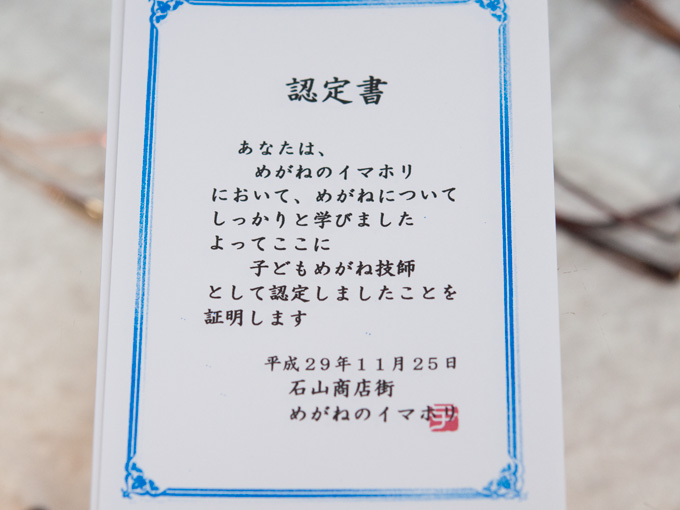 認定書
あなたは、
めがねのイマホリ
において、めがねについて
しっかりと学びました
よってここに
子どもめがね技師
として認定しましたことを
証明します
平成29年11月25日
石山商店街
めがねのイマホリ